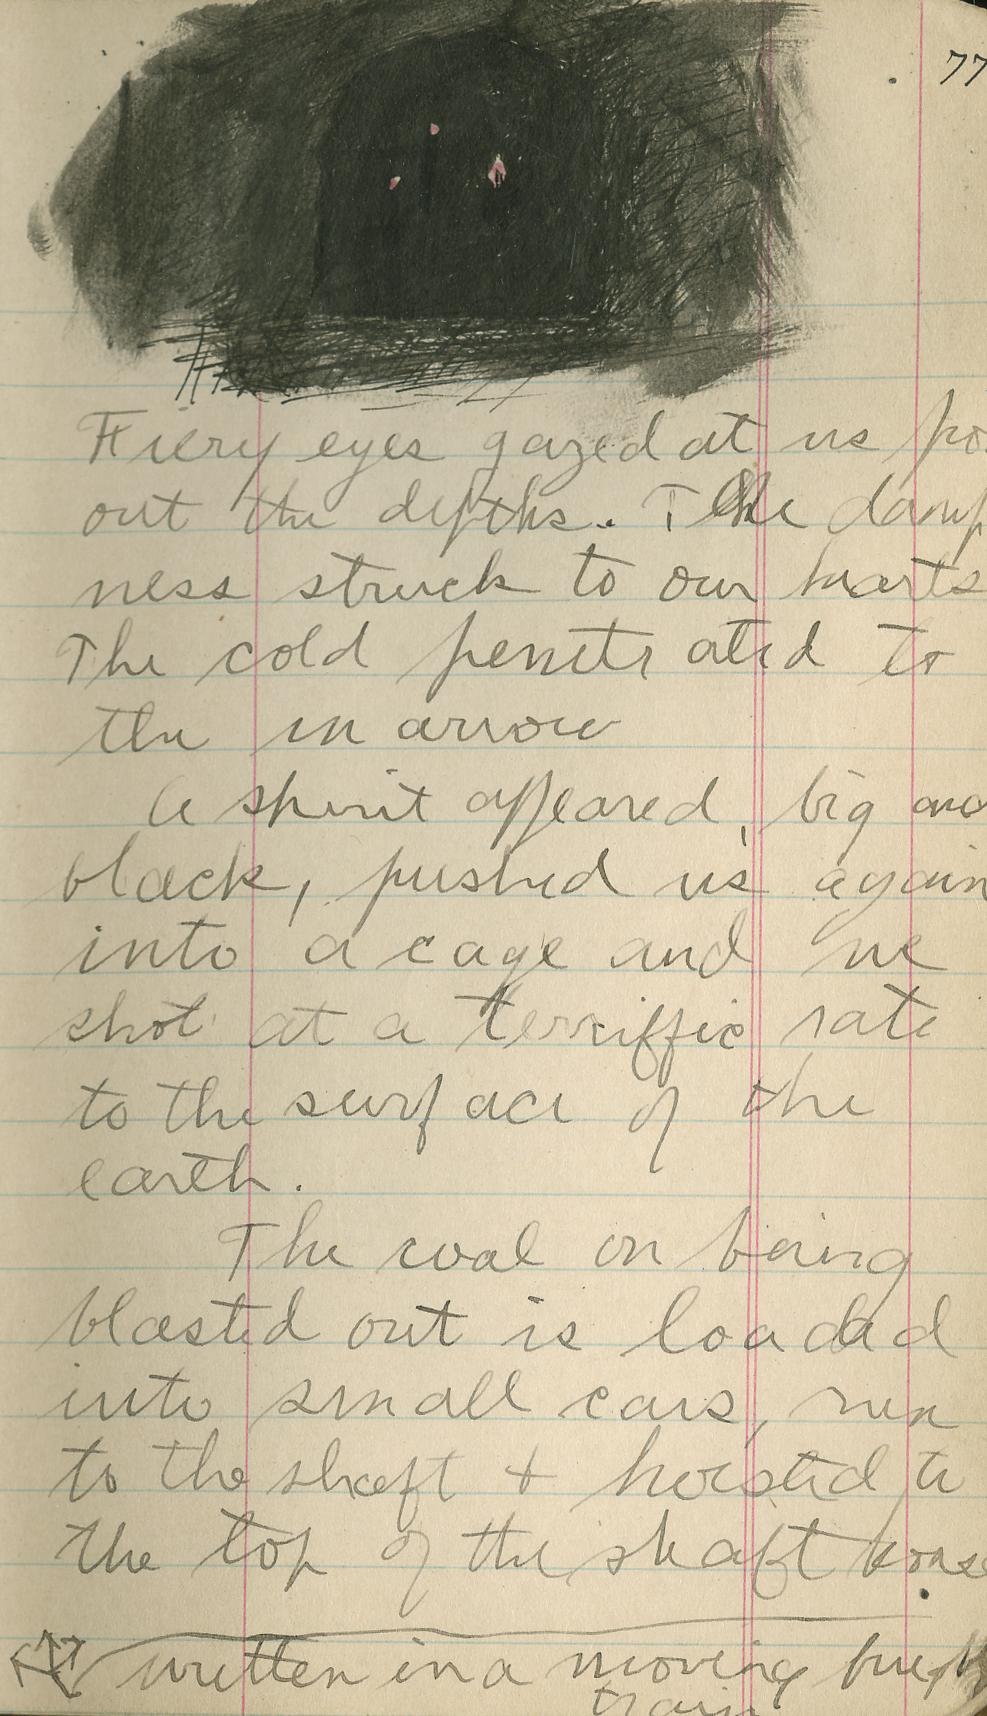 77
Fiery eyes gazed at us
out the depths. The damp
ness struck to our hearts
The cold penetrated to
the marrow
A spirit appeared, big and
black, pushed us again
into a cage and we
shot at a terriffic rate
to the surface of the
earth.
The coal on being
blasted out is loaded
into small cars, run
to the shaft + hoisted to
the top of the shaft house
written in a moving
train